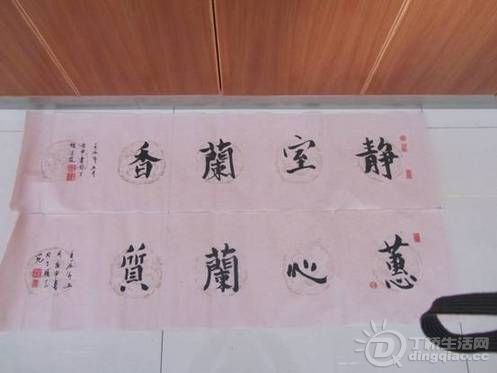 静室蘭香
蕙心蘭質
丁桥生活网
dingqiao.cc